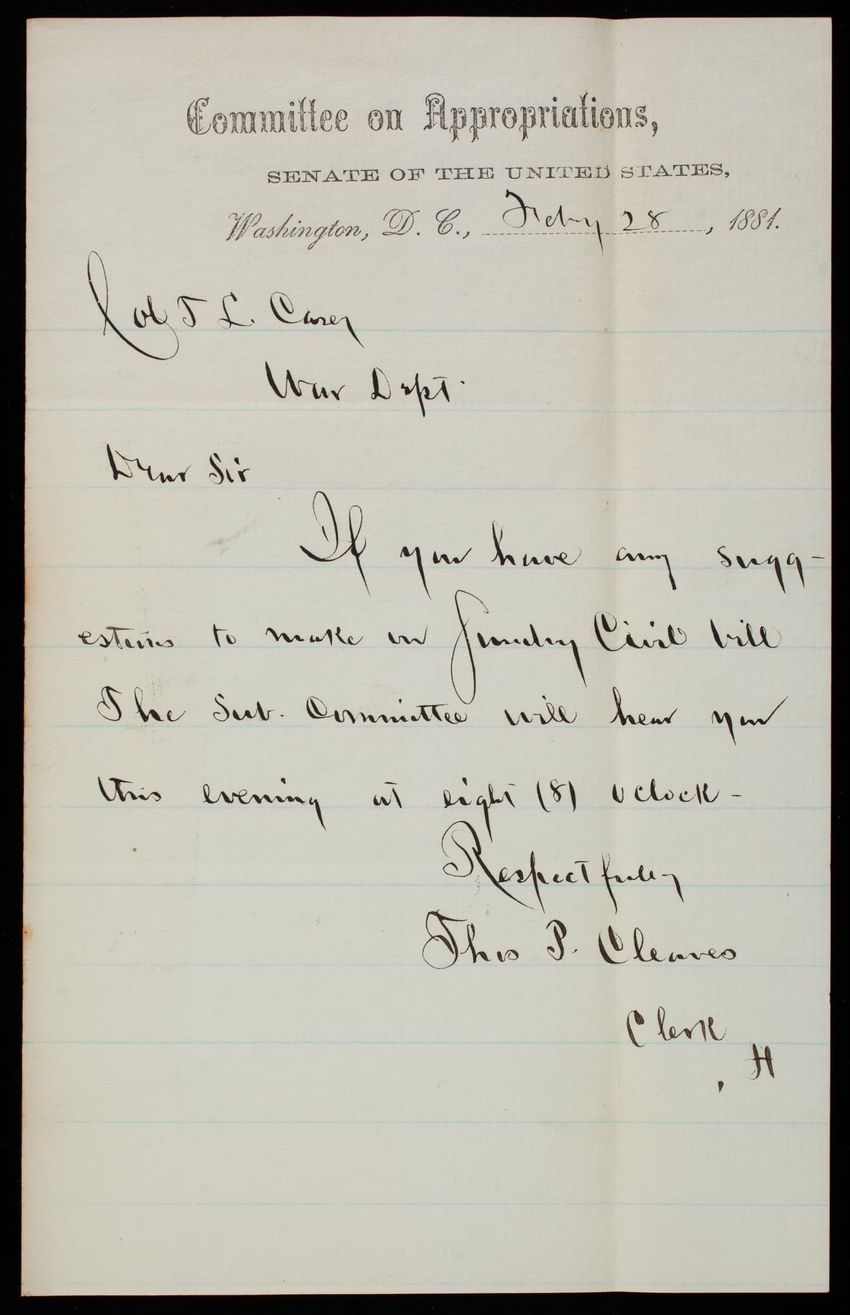 Committee on Appropriations,
SENATE OF THE UNITED STATES,
Washington, D. C., Feby 28, 1881.
Col T L. Casey
War Dept.
Dear Sir
If you have any sugg-
estions to make on Sundry Civil bill
The Sub. Committee will hear you
this evening at eight (8) oclock -
Respectfully
Thos P. Cleaves
Clerk
H